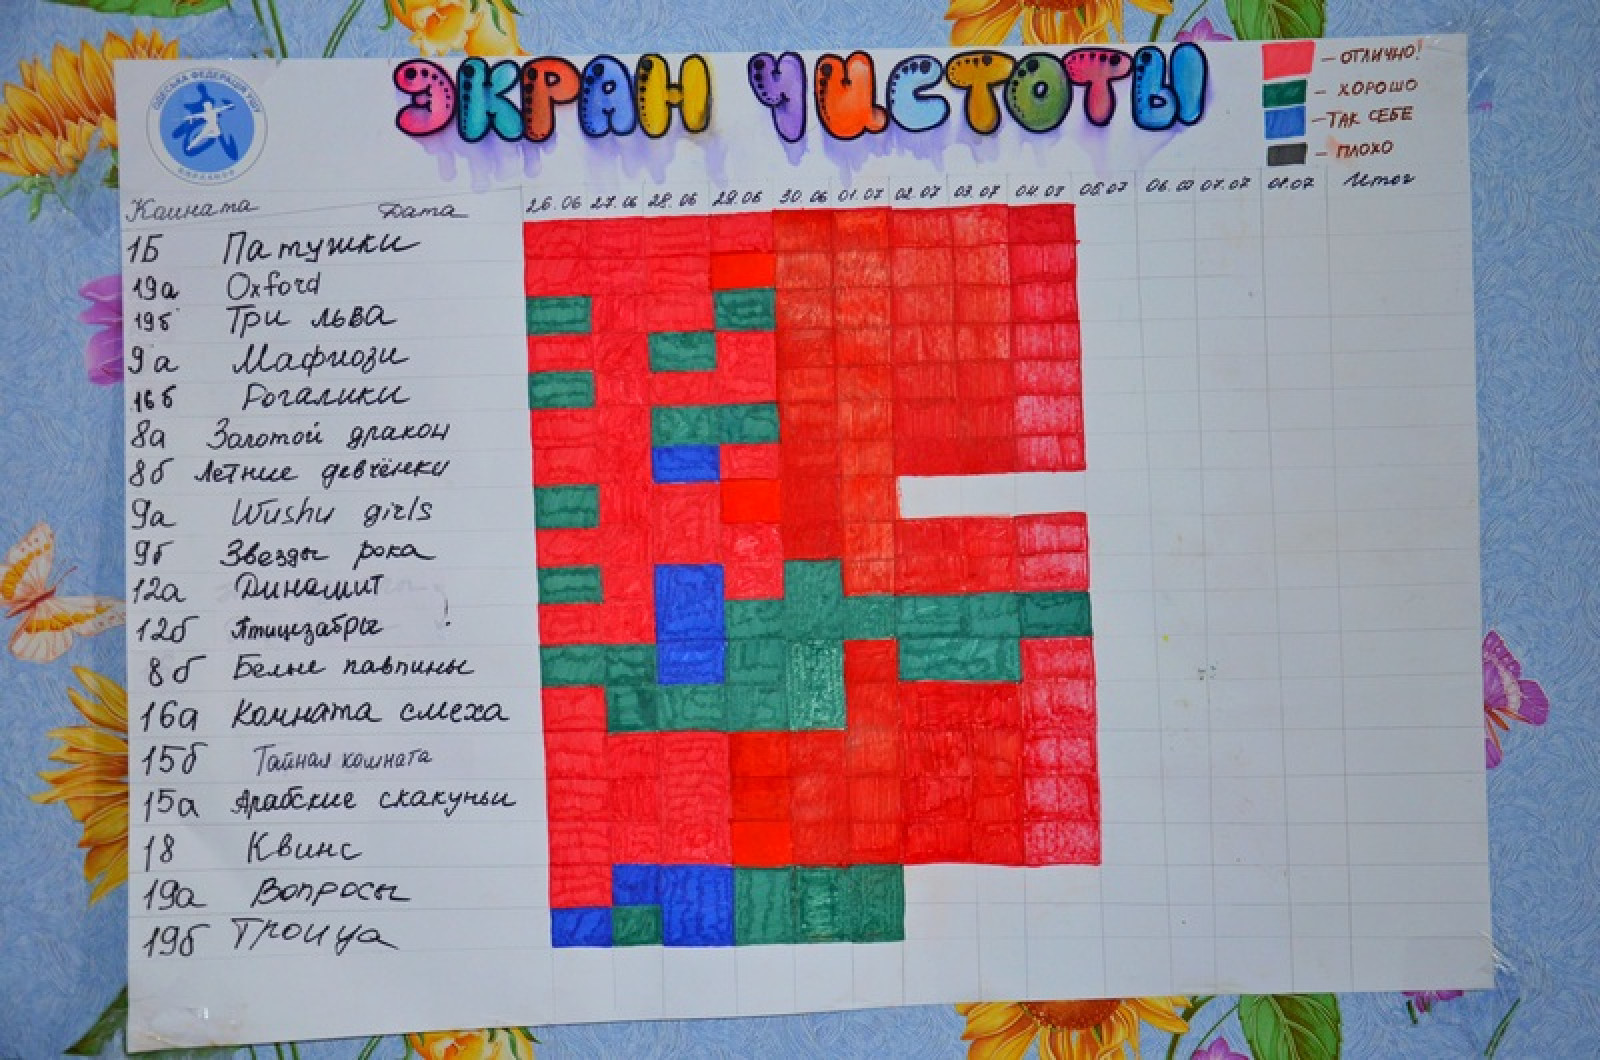 ЭКРАН ЧИСТОТЫ
— ОТЛИЧНО!
— ХОРОШО
— ТАК СЕБЕ
— ПЛОХО
ОДЕСЬКА ФЕДЕРАЦІЯ УШУ
Комната Дата 26.06 27.06 28.06 29.06 30.06 01.07 02.07 03.07 04.07 05.07 06.07 07.07 08.07 Итог
1Б Патужки
19а Oxford
19б Три льва
9а Мафиози
16б Рогалики
8а Золотой дракон
8б Летние девчёнки
9а Wushu girls
9б Звезды рока
12а Динамит
12б Птицезабры !
8б Белые павлины
16а Комната смеха
15б Тайная комната
15а Арабские скакуны
18 Квинс
19а Вопросы
19б Троица